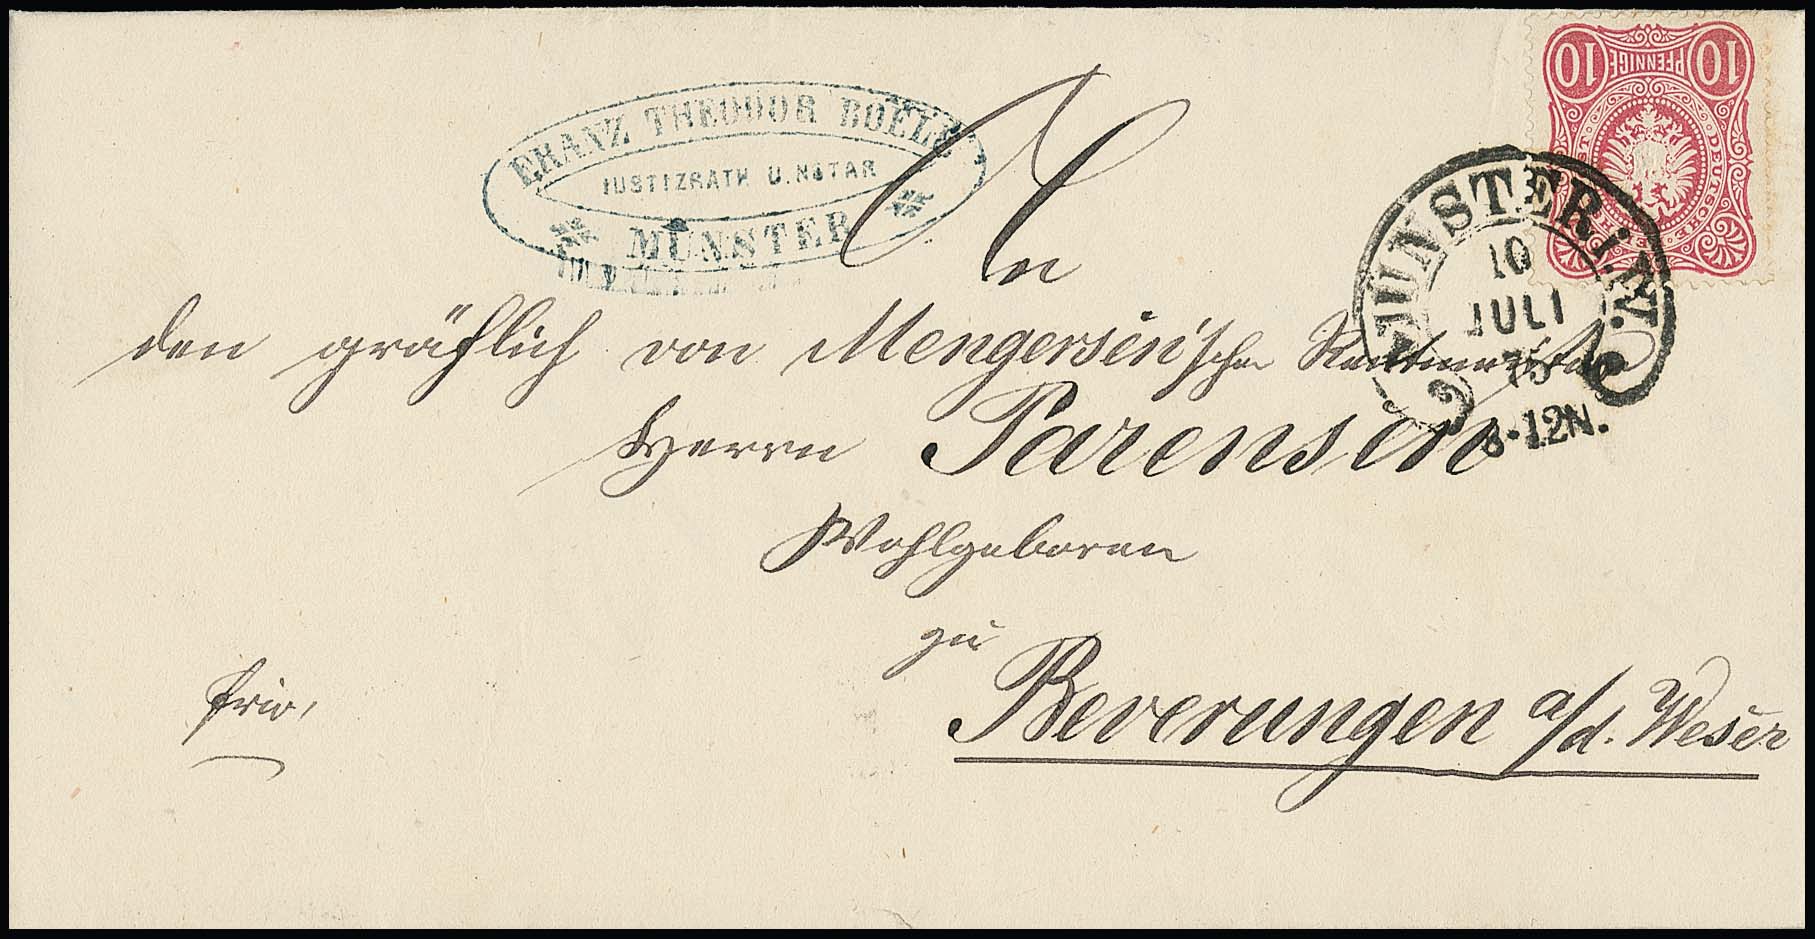 FRANZ THEODOR BOELE
JUSTIZRATH U. NOTAR
MÜNSTER
10 PFENNIGE 10
MÜNSTER i. W.
10
JULI
75
8-12N.
An
den gräflich von Mengersen'schen Rentmeister
Herrn Parensen
Wohlgeboren
zu
Beverungen a/d. Weser
frco,